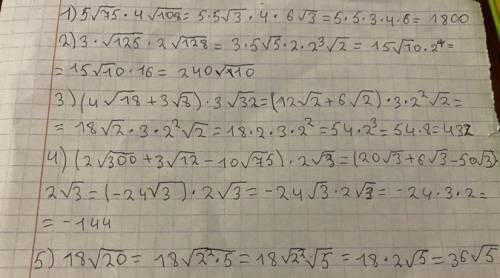 1) 5√75 · 4√108 = 5·5√3 · 4 · 6√3 = 5·5·3·4·6 = 1800
2) 3·√125 · 2√128 = 3·5√5·2·2³√2 = 15√10·2⁴=
= 15√10 · 16 = 240√10
3) (4√18 + 3√8)·3√32 = (12√2 + 6√2)·3·2²√2 =
= 18√2·3·2²√2 = 18·2·3·2² = 54·2³ = 54·8 = 432
4) (2√300 + 3√12 - 10√75)·2√3 = (20√3 + 6√3 - 50√3)
2√3 = (-24√3)·2√3 = -24√3·2√3 = -24·3·2 =
= -144
5) 18√20 = 18√2²·5 = 18√2²√5 = 18·2√5 = 36√5